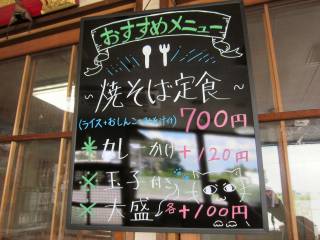 おすすめメニュー
～焼そば定食～
(ライス+おしんこ+みそ汁付) 700円
※カレーかけ +120円
※玉子付
※大盛 各+100円